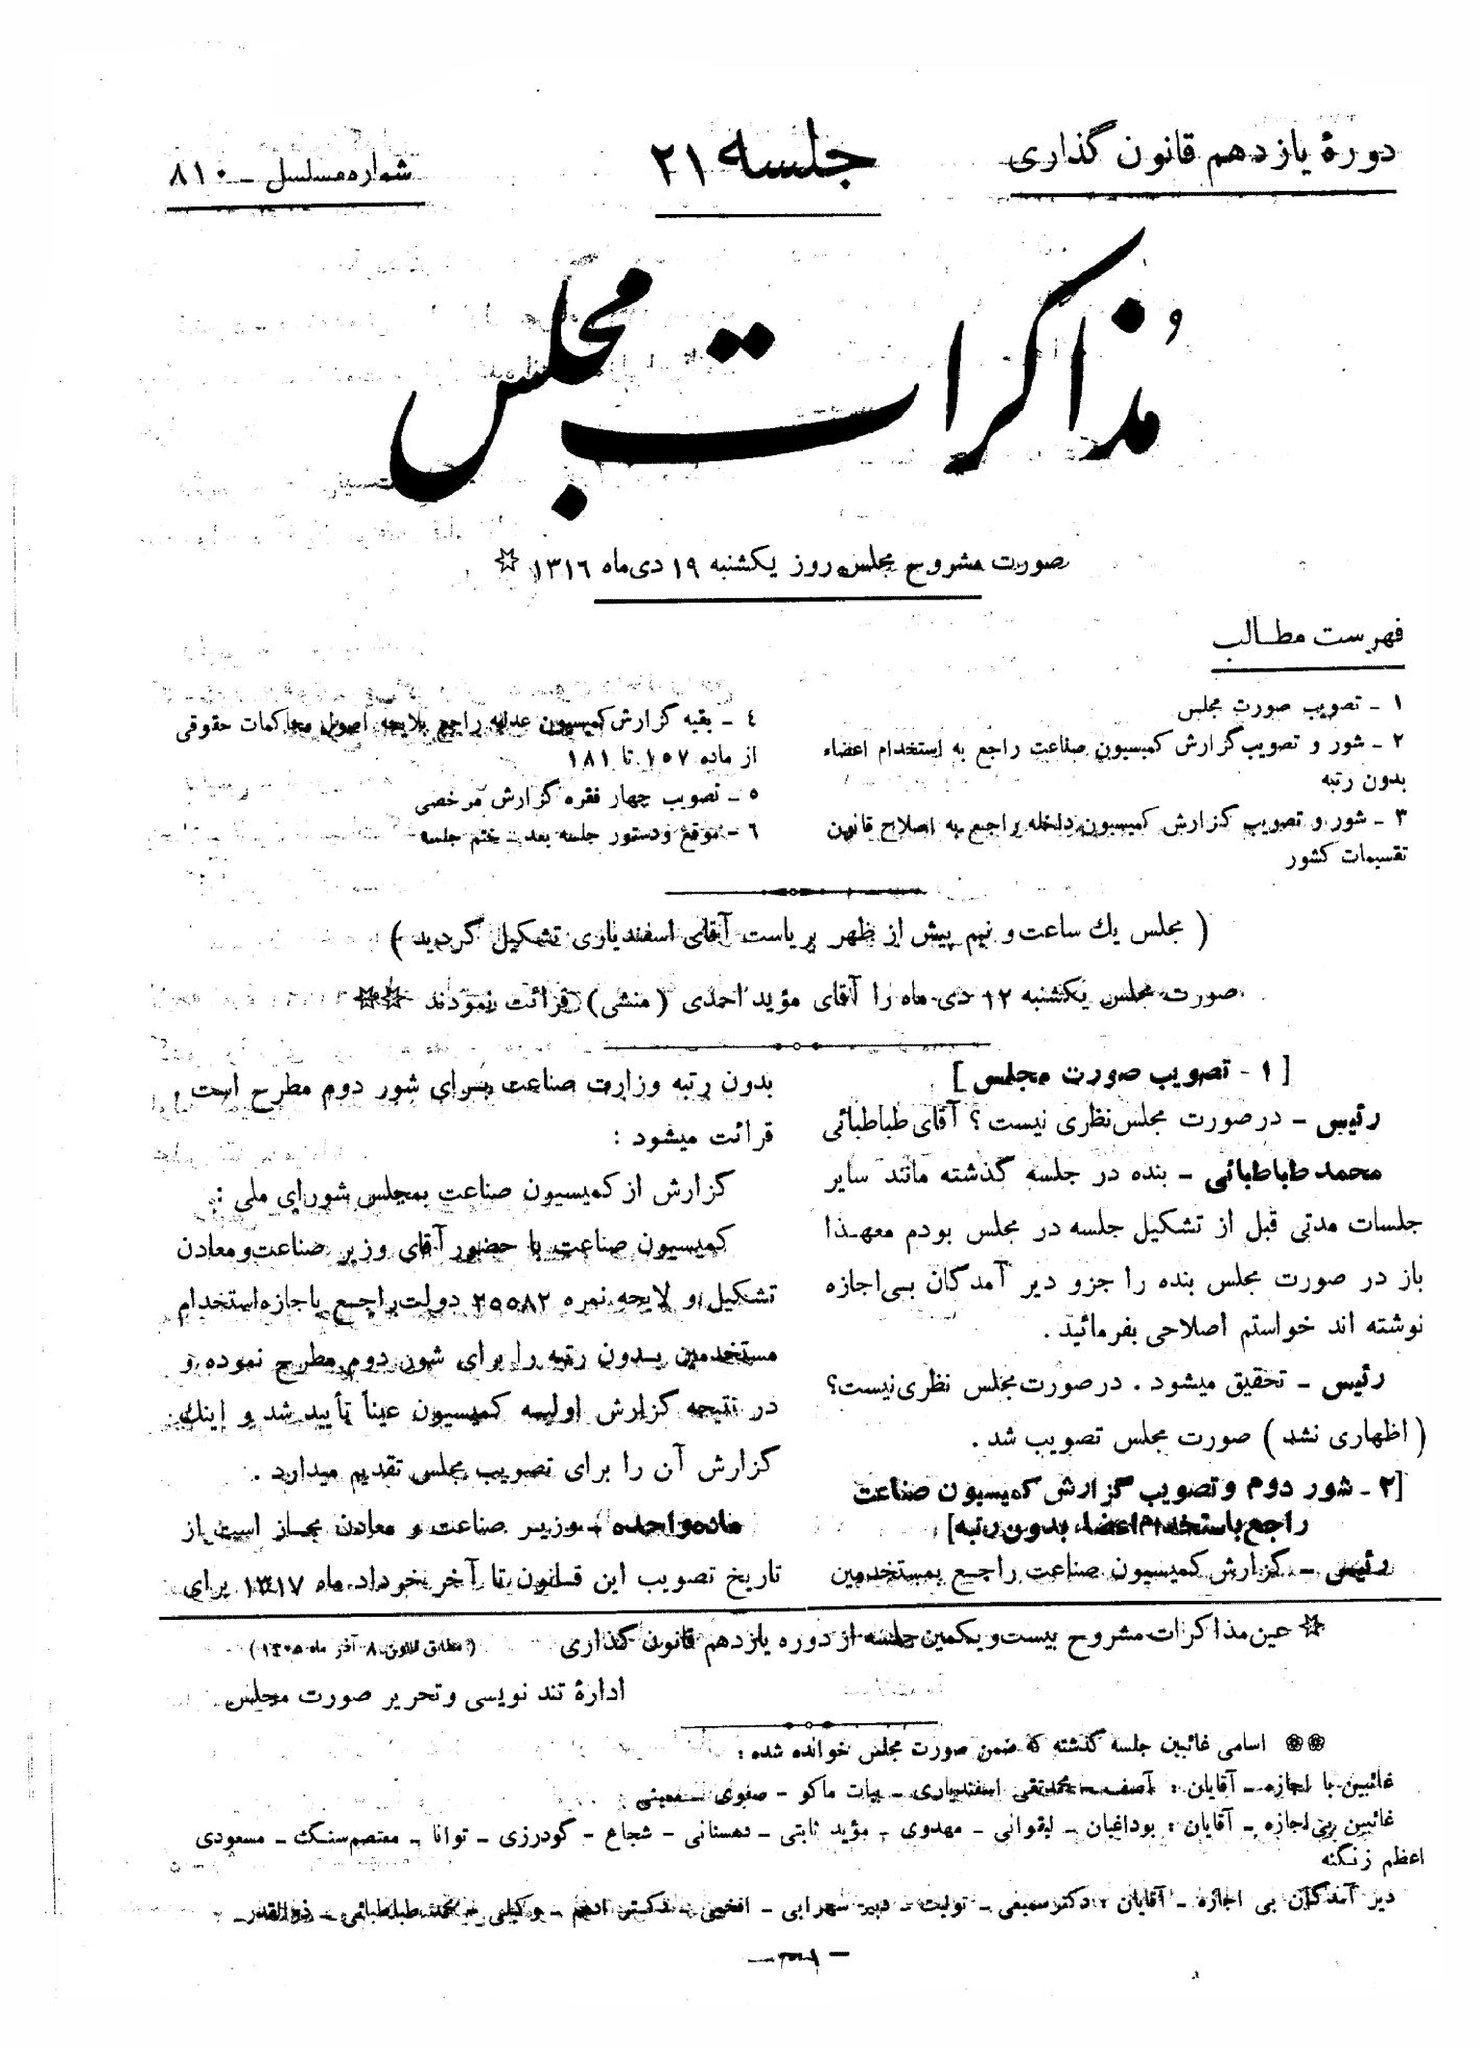 دورهٔ یازدهم قانون گذاری
جلسه ۲۱
شماره مسلسل ـ ۸۱۰
مذاکرات مجلس
صورت مشروح مجلس روز یکشنبه ۱۹ دی‌ماه ۱۳۱۶ ☆
فهرست مطالب
۱ ـ تصویب صورت مجلس
۲ ـ شور و تصویب گزارش کمیسیون صناعت راجع به استخدام اعضاء
بدون رتبه
۳ ـ شور و تصویب گزارش کمیسیون داخله راجع به اصلاح قانون
تقسیمات کشور
۴ ـ بقیه گزارش کمیسیون عدلیه راجع بلایحه اصول محاکمات حقوقی
از ماده ۱۵۷ تا ۱۸۱
۵ ـ تصویب چهار فقره گزارش مرخصی
۶ ـ موقع و دستور جلسه بعد ـ ختم جلسه
( مجلس یك ساعت و نیم پیش از ظهر بریاست آقای اسفندیاری تشکیل گردید )
صورت مجلس یکشنبه ۱۲ دی ماه را آقای مؤید احمدی (منشی) قرائت نمودند ☆☆
[ ۱ - تصویب صورت مجلس ]
رئیس ـ در صورت مجلس نظری نیست ؟ آقای طباطبائی
محمد طباطبائی ـ بنده در جلسه گذشته مانند سایر
جلسات مدتی قبل از تشکیل جلسه در مجلس بودم معهـذا
باز در صورت مجلس بنده را جزو دیر آمدگان بـی‌اجازه
نوشته اند خواستم اصلاحی بفرمائید .
رئیس ـ تحقیق میشود . در صورت مجلس نظری نیست؟
( اظهاری نشد ) صورت مجلس تصویب شد .
[۲ ـ شور دوم و تصویب گزارش کمیسیون صناعت
راجع باستخدام اعضاء بدون رتبه]
رئیس ـ گزارش کمیسیون صناعت راجـع بمستخدمین
بدون رتبه وزارت صناعت بـرای شور دوم مطرح است
قرائت میشود :
گزارش از کمیسیون صناعت بمجلس شورای ملی :
کمیسیون صناعت با حضور آقای وزیر صناعت و معادن
تشکیل و لایحه نمره ۲۵۵۸۲ دولت راجـع باجازه استخدام
مستخدمین بـدون رتبه را برای شور دوم مطرح نموده و
در نتیجه گزارش اولیـه کمیسیون عیناً تأیید شد و اینك
گزارش آن را برای تصویب مجلس تقدیم میدارد .
ماده واحده ـ وزیـر صناعت و معادن مجـاز است از
تاریخ تصویب این قـانون تا آخر خرداد ماه ۱۳۱۷ برای
☆ عین مذاکرات مشروح بیست و یکمین جلسه از دوره یازدهم قانون گذاری (مطابق قانون ۸ آذر ماه ۱۳۰۵)
ادارهٔ تند نویسی و تحریر صورت مجلس
❀❀ اسامی غائبین جلسه گذشته که ضمن صورت مجلس خوانده شده :
غائبین با اجازه ـ آقایان : آصف ـ محمدتقی اسفندیاری ـ بیات ماکو - صفوی
غائبین بی‌اجازه ـ آقایان : بوداغیان ـ لیقوانی ـ مهدوی ـ مؤید ثابتی ـ دهستانی - شجاع - گودرزی ـ توانا ـ معتصم‌سنگ ـ مسعودی
اعظم زنگنه
دیر آمدگان بی اجازه ـ آقایان : دکتر سمیعی ـ تولیت ـ دبیر سهرابی ـ افخمی ـ دکتر ادهم ـ وکیلی ـ محمد طباطبائی ـ ذوالقدر ـ